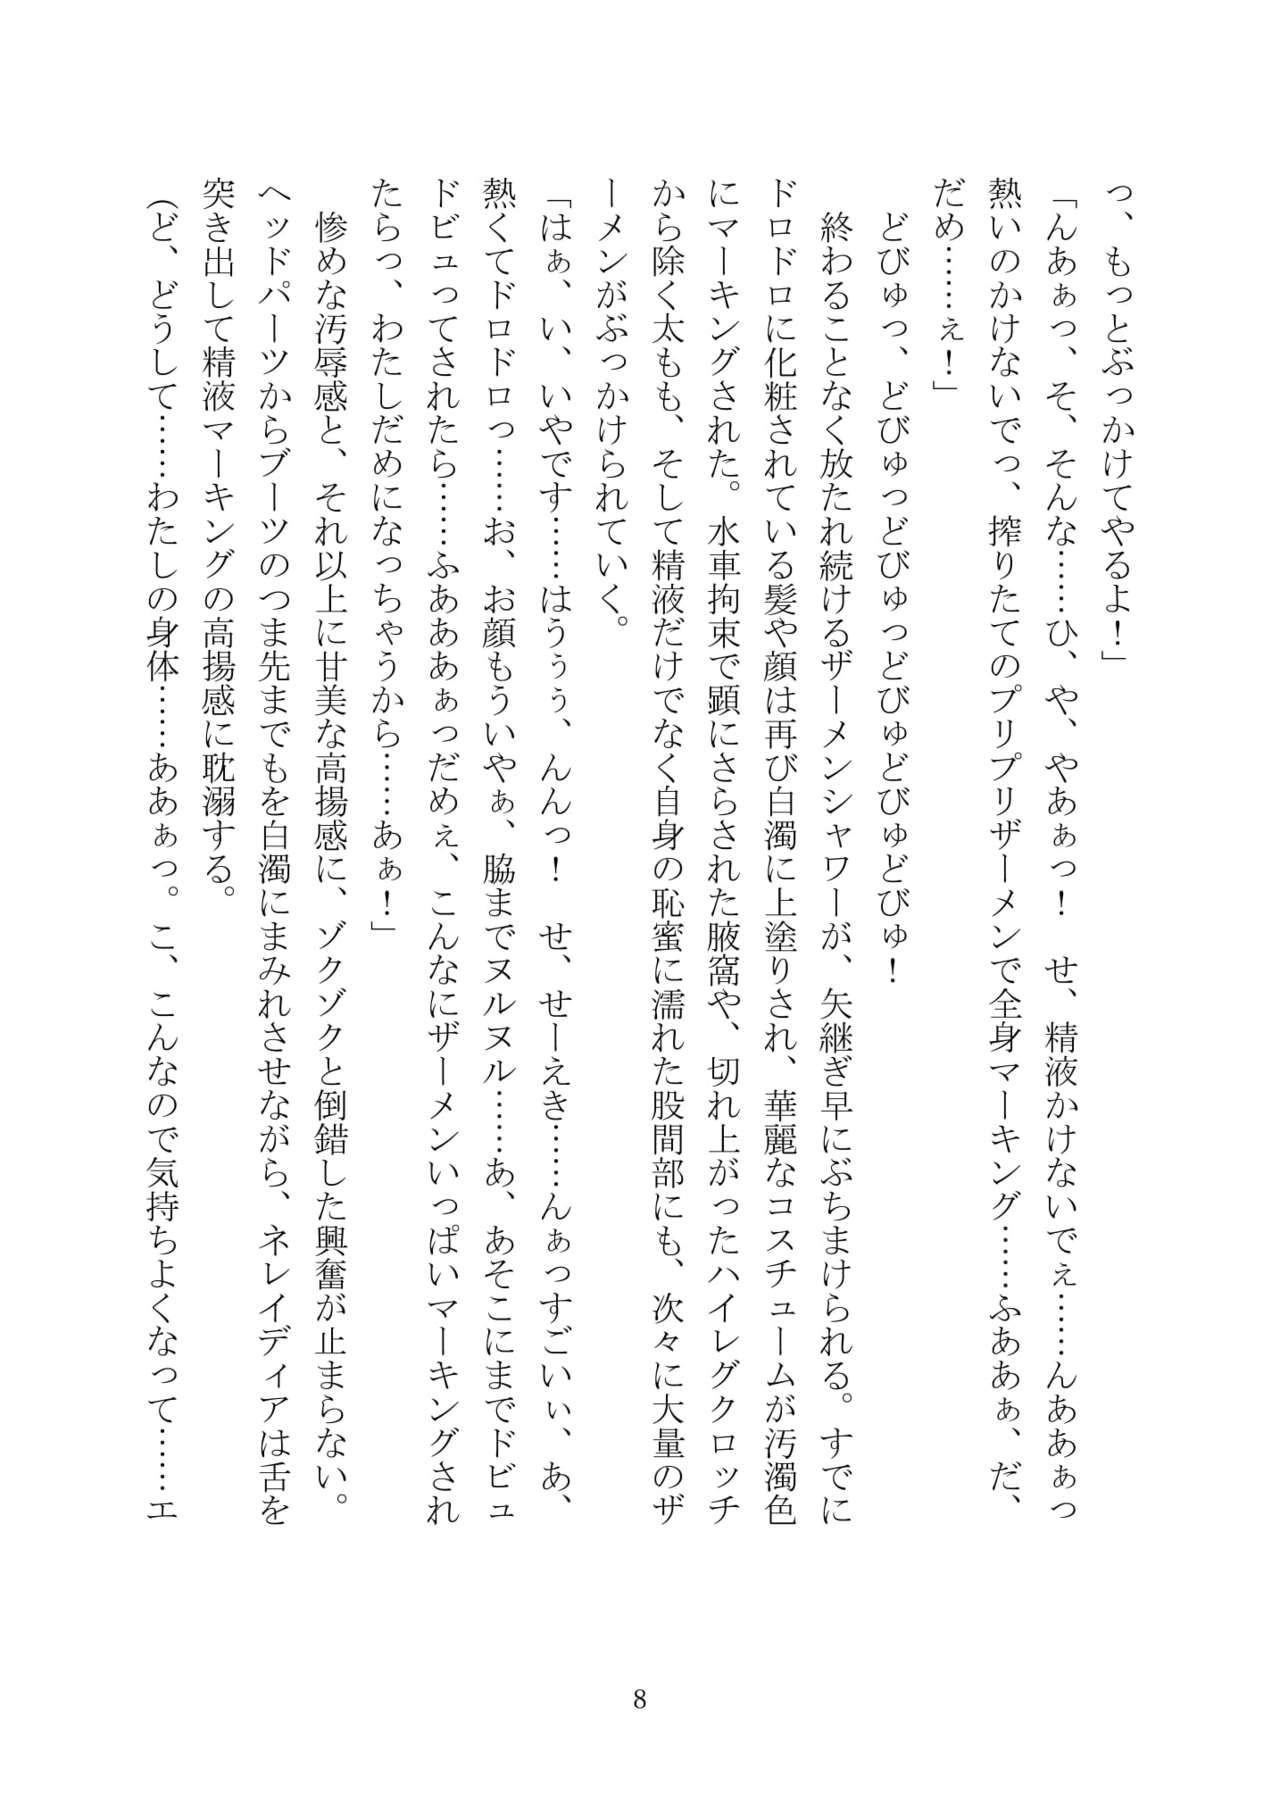 っ、もっとぶっかけてやるよ！」
「んあぁっ、そ、そんな……ひ、や、やあぁっ！　せ、精液かけないでぇ……んああぁっ
熱いのかけないでっ、搾りたてのプリプリザーメンで全身マーキング……ふああぁ、だ、
だめ……ぇ！」
どびゅっ、どびゅっどびゅっどびゅどびゅどびゅ！
終わることなく放たれ続けるザーメンシャワーが、矢継ぎ早にぶちまけられる。すでに
ドロドロに化粧されている髪や顔は再び白濁に上塗りされ、華麗なコスチュームが汚濁色
にマーキングされた。水車拘束で顕にさらされた腋窩や、切れ上がったハイレグクロッチ
から除く太もも、そして精液だけでなく自身の恥蜜に濡れた股間部にも、次々に大量のザ
ーメンがぶっかけられていく。
「はぁ、い、いやです……はうぅぅ、んんっ！　せ、せーえき……んぁっすごいぃ、あ、
熱くてドロドロっ……お、お顔もういやぁ、脇までヌルヌル……あ、あそこにまでドビュ
ドビュってされたら……ふあああぁっだめぇ、こんなにザーメンいっぱいマーキングされ
たらっ、わたしだめになっちゃうから……あぁ！」
惨めな汚辱感と、それ以上に甘美な高揚感に、ゾクゾクと倒錯した興奮が止まらない。
ヘッドパーツからブーツのつま先までもを白濁にまみれさせながら、ネレイディアは舌を
突き出して精液マーキングの高揚感に耽溺する。
（ど、どうして……わたしの身体……ああぁっ。こ、こんなので気持ちよくなって……エ
8